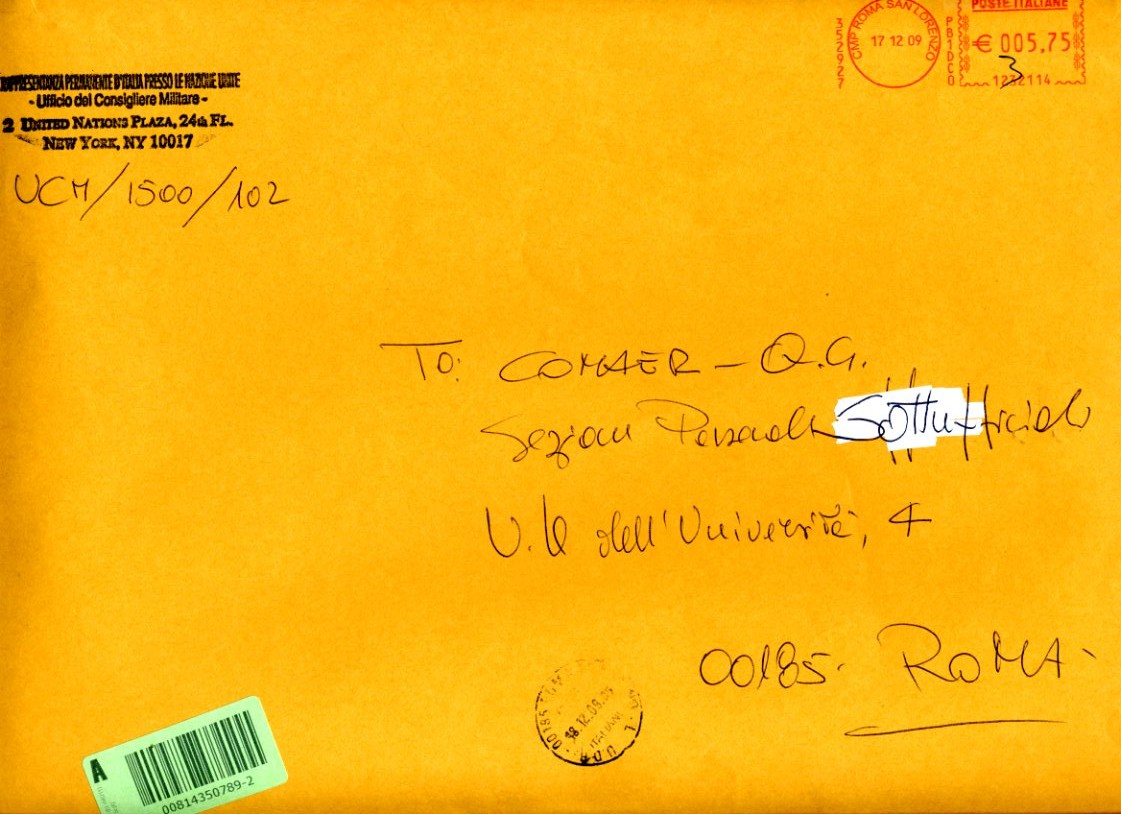 RAPPRESENTANZA PERMANENTE D'ITALIA PRESSO LE NAZIONE UNITE
- Ufficio del Consigliere Militare -
2 UNITED NATIONS PLAZA, 24th FL.
NEW YORK, NY 10017
UCM/1500/102
352927
CMP ROMA SAN LORENZO
17 12 09
PB1DC0
POSTE ITALIANE
€ 005,75
3
1232114
TO: COMAER - Q.G.
Sezione Personale Sottufficiali
V.le dell'Università, 4
00185. ROMA -
00185
18.12.09
U.D.R
A
00814350789-2